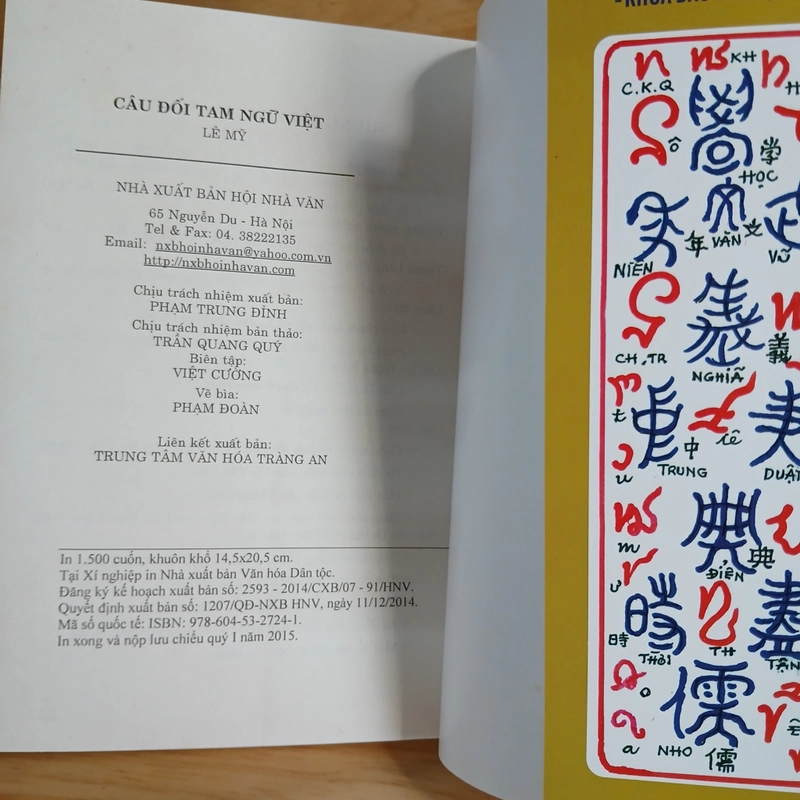 CÂU ĐỐI TAM NGỮ VIỆT
LÊ MỸ
NHÀ XUẤT BẢN HỘI NHÀ VĂN
65 Nguyễn Du - Hà Nội
Tel & Fax: 04. 38222135
Email: nxbhoinhavan@yahoo.com.vn
http://nxbhoinhavan.com
Chịu trách nhiệm xuất bản:
PHẠM TRUNG ĐỈNH
Chịu trách nhiệm bản thảo:
TRẦN QUANG QUÝ
Biên tập:
VIỆT CƯỜNG
Vẽ bìa:
PHẠM ĐOÀN
Liên kết xuất bản:
TRUNG TÂM VĂN HÓA TRÀNG AN
In 1.500 cuốn, khuôn khổ 14,5x20,5 cm.
Tại Xí nghiệp in Nhà xuất bản Văn hóa Dân tộc.
Đăng ký kế hoạch xuất bản số: 2593 - 2014/CXB/07 - 91/HNV.
Quyết định xuất bản số: 1207/QĐ-NXB HNV, ngày 11/12/2014.
Mã số quốc tế: ISBN: 978-604-53-2724-1.
In xong và nộp lưu chiểu quý I năm 2015.
KH
C.K.Q
Ô
學
HỌC
年 VĂN 文
VŨ
NIÊN
CH,TR
NGHĨA
義
t
中
iê
TRUNG
DUẬT
u
m
ĐIỂN
典
ư
時
THỜI
TH
TẬN
o
a
NHO
儒